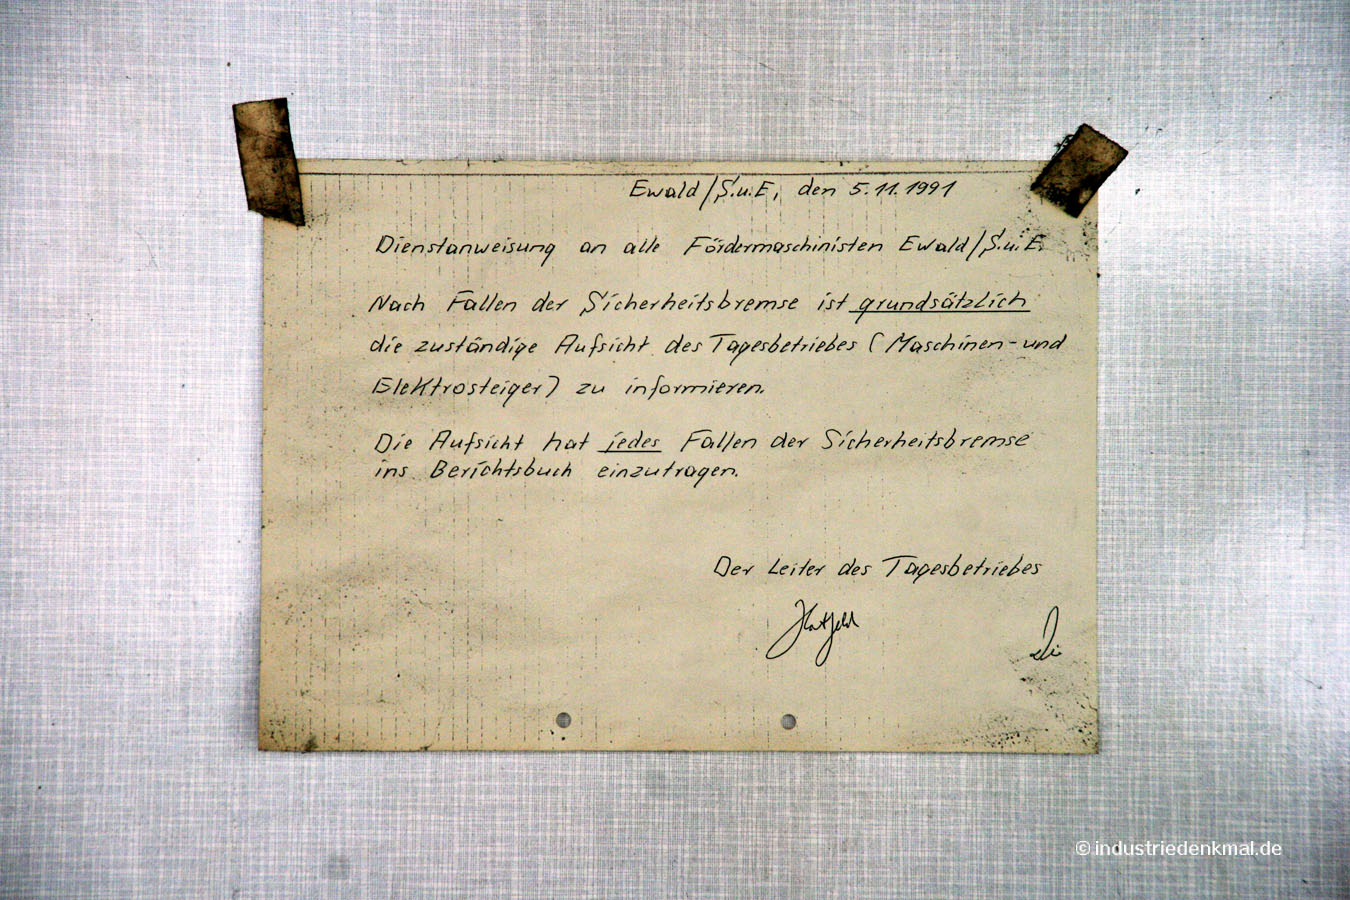 Ewald/S.u.E, den 5.11.1991
Dienstanweisung an alle Fördermaschinisten Ewald/S.u.E.
Nach Fallen der Sicherheitsbremse ist grundsätzlich
die zuständige Aufsicht des Tagesbetriebes (Maschinen- und
Elektrosteiger) zu informieren.
Die Aufsicht hat jedes Fallen der Sicherheitsbremse
ins Berichtsbuch einzutragen.
Der Leiter des Tagesbetriebes
© industriedenkmal.de